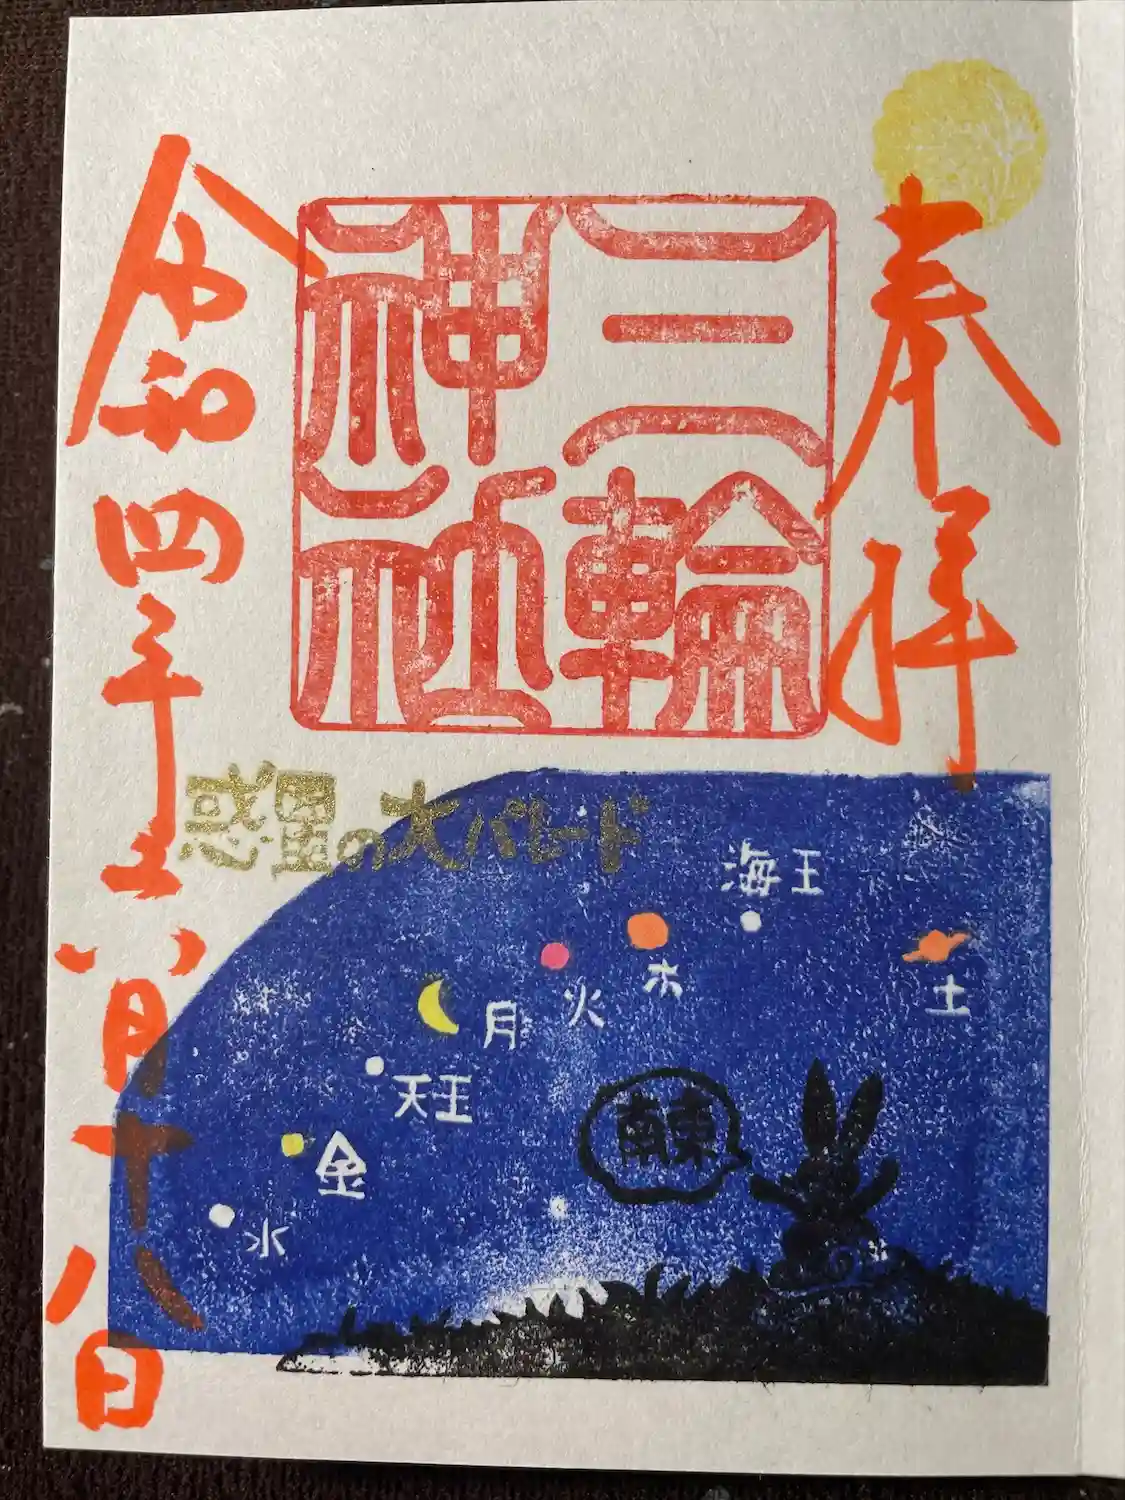 奉拝
三輪
神社
令和四年六月十八日
惑星の大パレード
海王
土
木
火
月
天王
金
水
南東